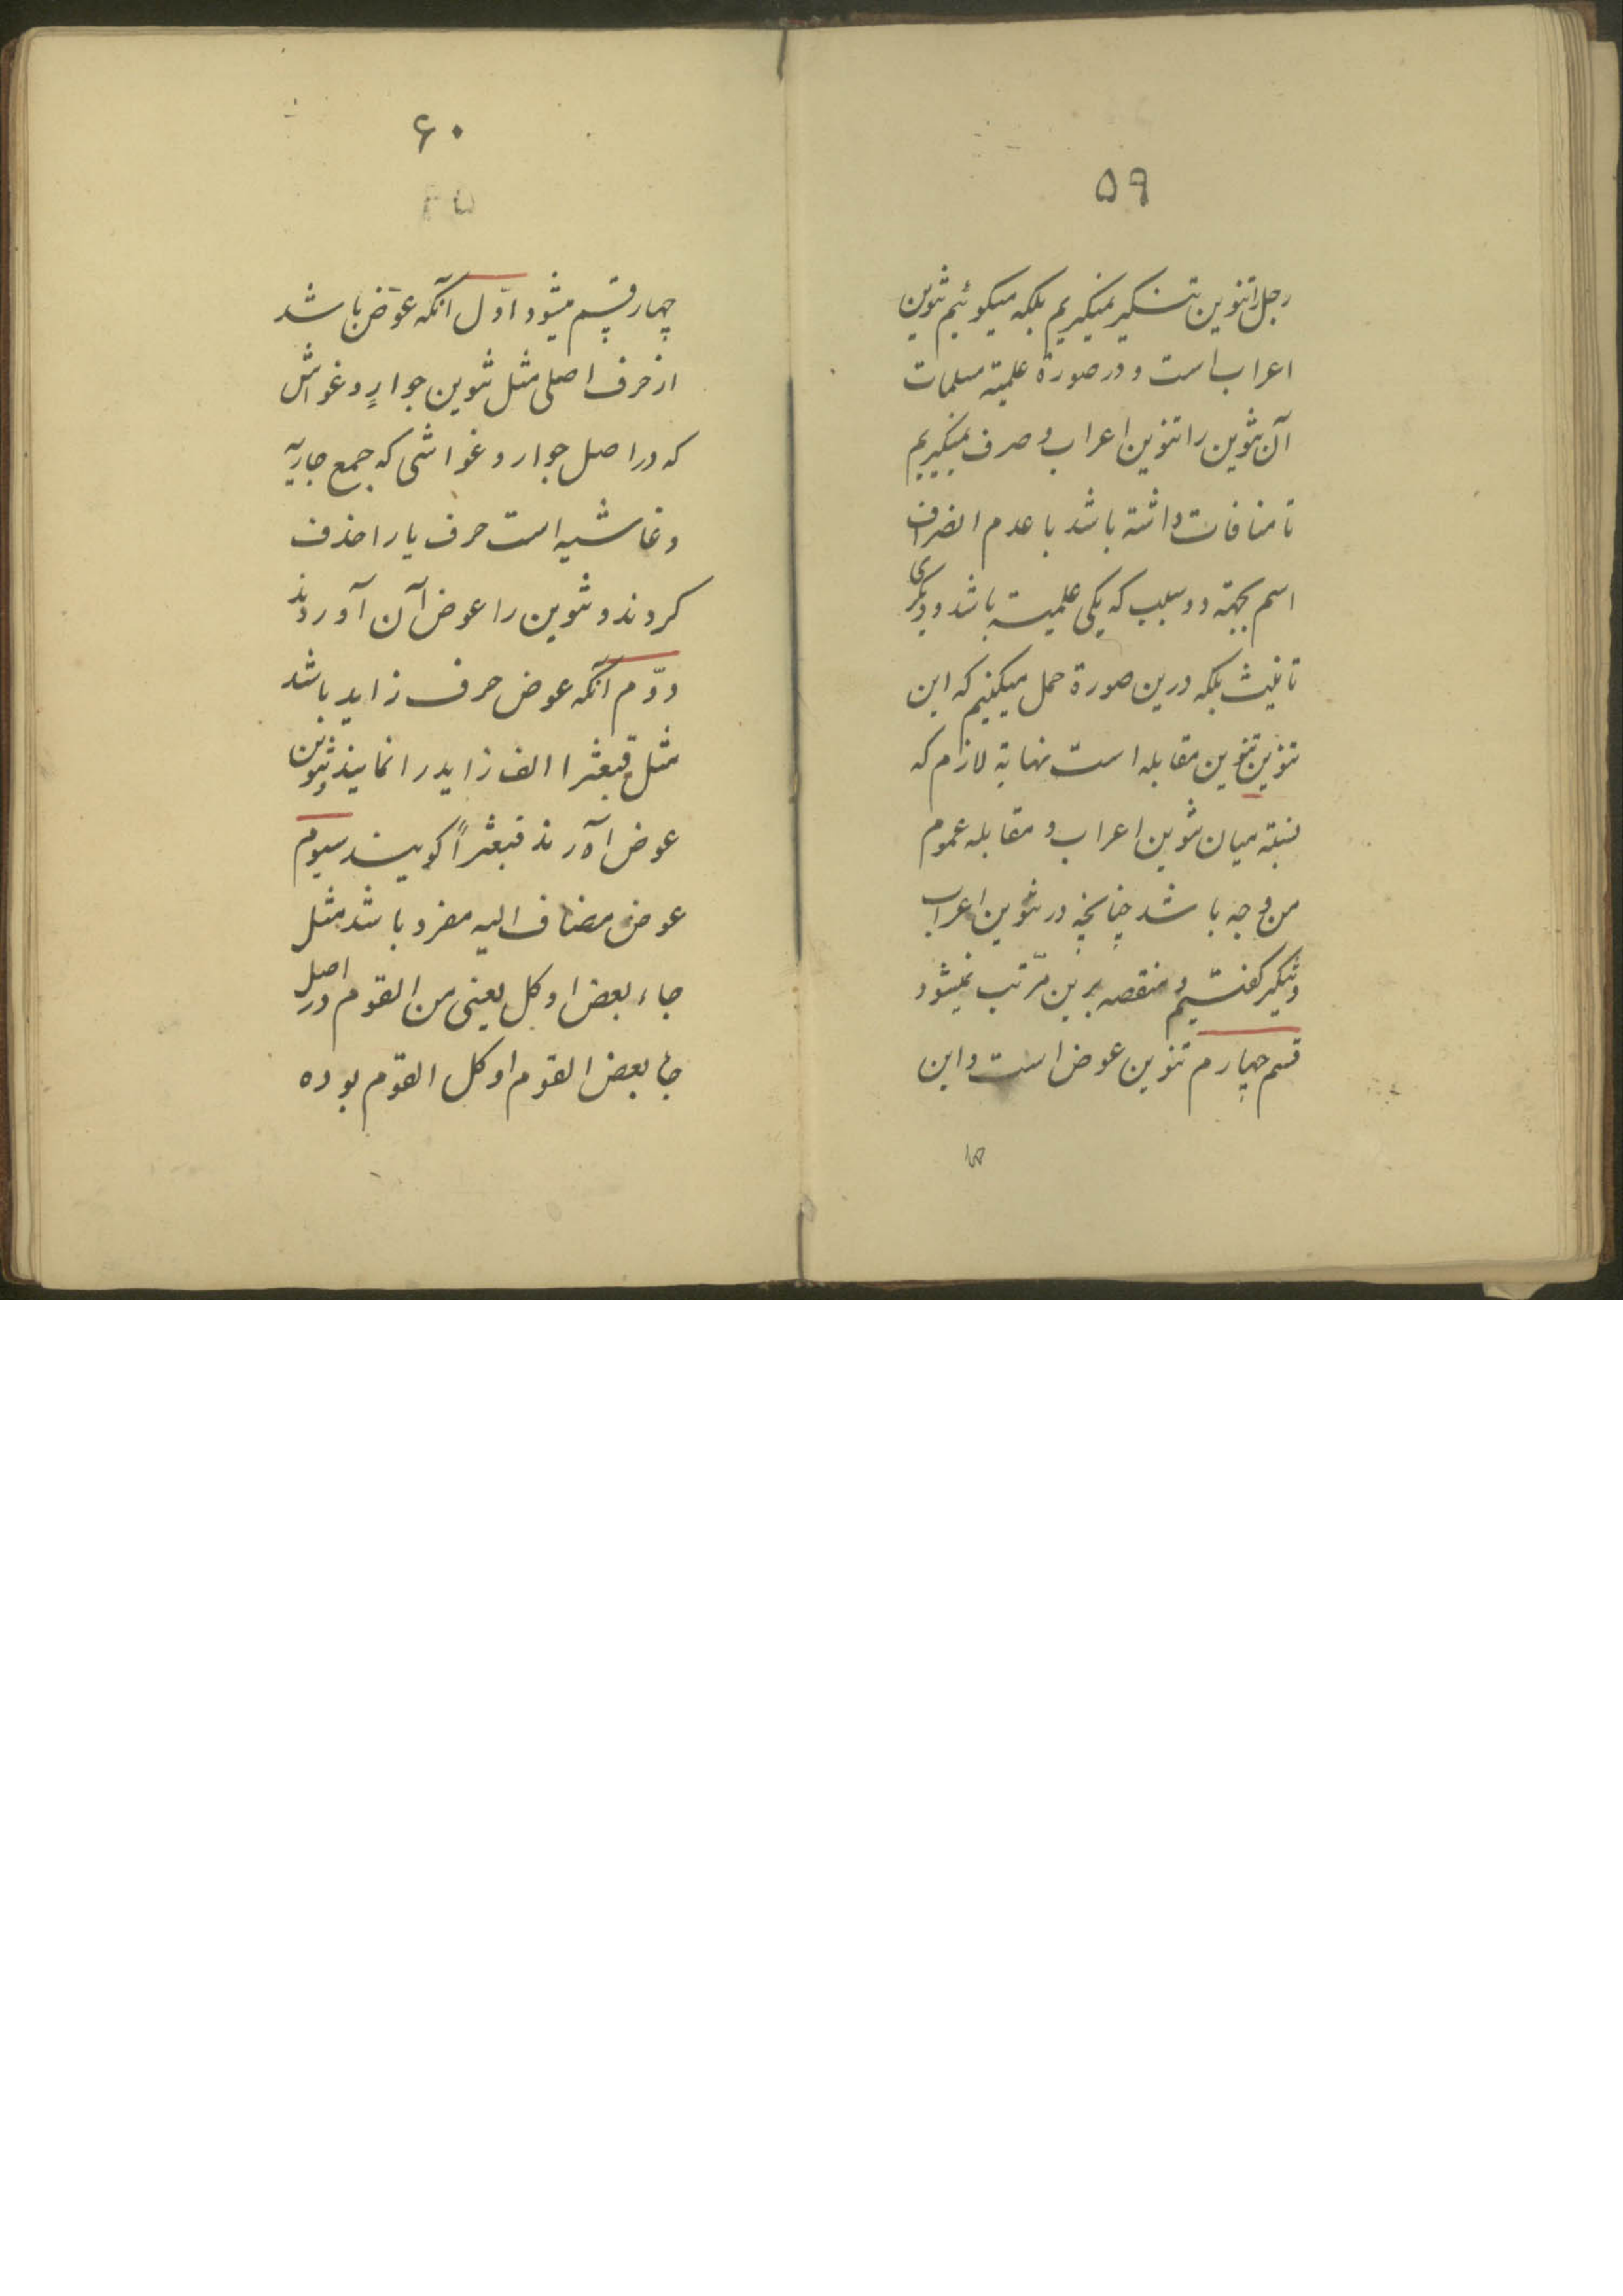 ۵۹
رجل را تنوین تنکیر نمیکیریم بلکه میکوئیم تنوین
اعراب است و در صورة علمیته مسلمات
آن تنوین را تنوین اعراب و صرف نمیکیریم
تا منافات داشته باشد با عدم انصراف
اسم بجهة دو سبب که یکی علمیت باشد و دیکری
تانیث بلکه درین صورة حمل میکنیم که این
تنوین تنوین مقابله است نهایة لازم که
نسبته میان تنوین اعراب و مقابله عموم
من وجه باشد چنانچه در تنوین اعراب
و تنکیر کفتیم و منقصه برین مرّتب نمیشود
قسم چهارم تنوین عوض است و این
۶۰
چهار قسم میشود اوّل آنکه عوض باشد
از حرف اصلی مثل تنوین جوارٍ و غواش
که در اصل جوار و غواشی که جمع جاریه
و غاشیه است حرف یا را حذف
کردند و تنوین را عوض آن آوردند
دوّم آنکه عوض حرف زاید باشد
مثل قبعثرا الف زاید را نمایند و تنوین
عوض آرند قبعثراً کویند سیوم
عوض مضاف الیه مفرد باشد مثل
جاء بعض او کل یعنی من القوم در اصل
جاء بعض القوم او کل القوم بوده